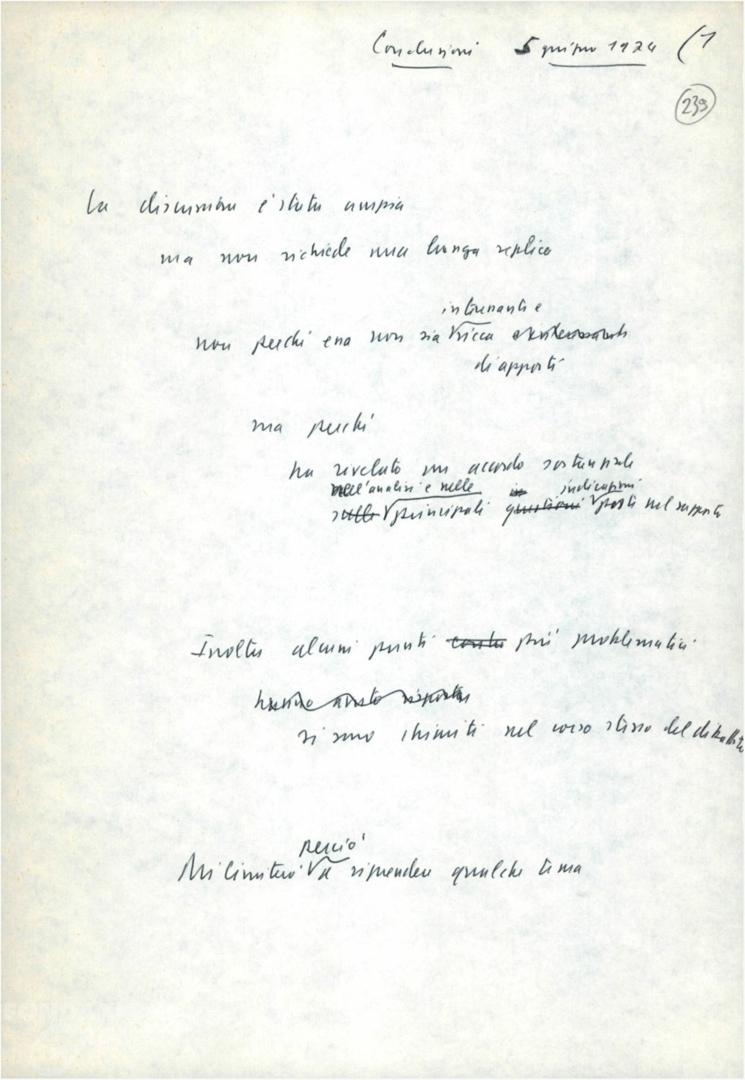 Conclusioni 5 giugno 1974 (1
239
La discussione è stata ampia
ma non richiede una lunga replica
interessante e
non perché essa non sia ricca
di apporti
ma perché
ha rivelato un accordo sostanziale
nell'analisi e nelle in indicazioni
sulle principali questioni poste nel rapporto
Inoltre alcuni punti più problematici
hanno avuto risposta
si sono chiariti nel corso stesso del dibattito
perciò
Mi limiterò a riprendere qualche tema